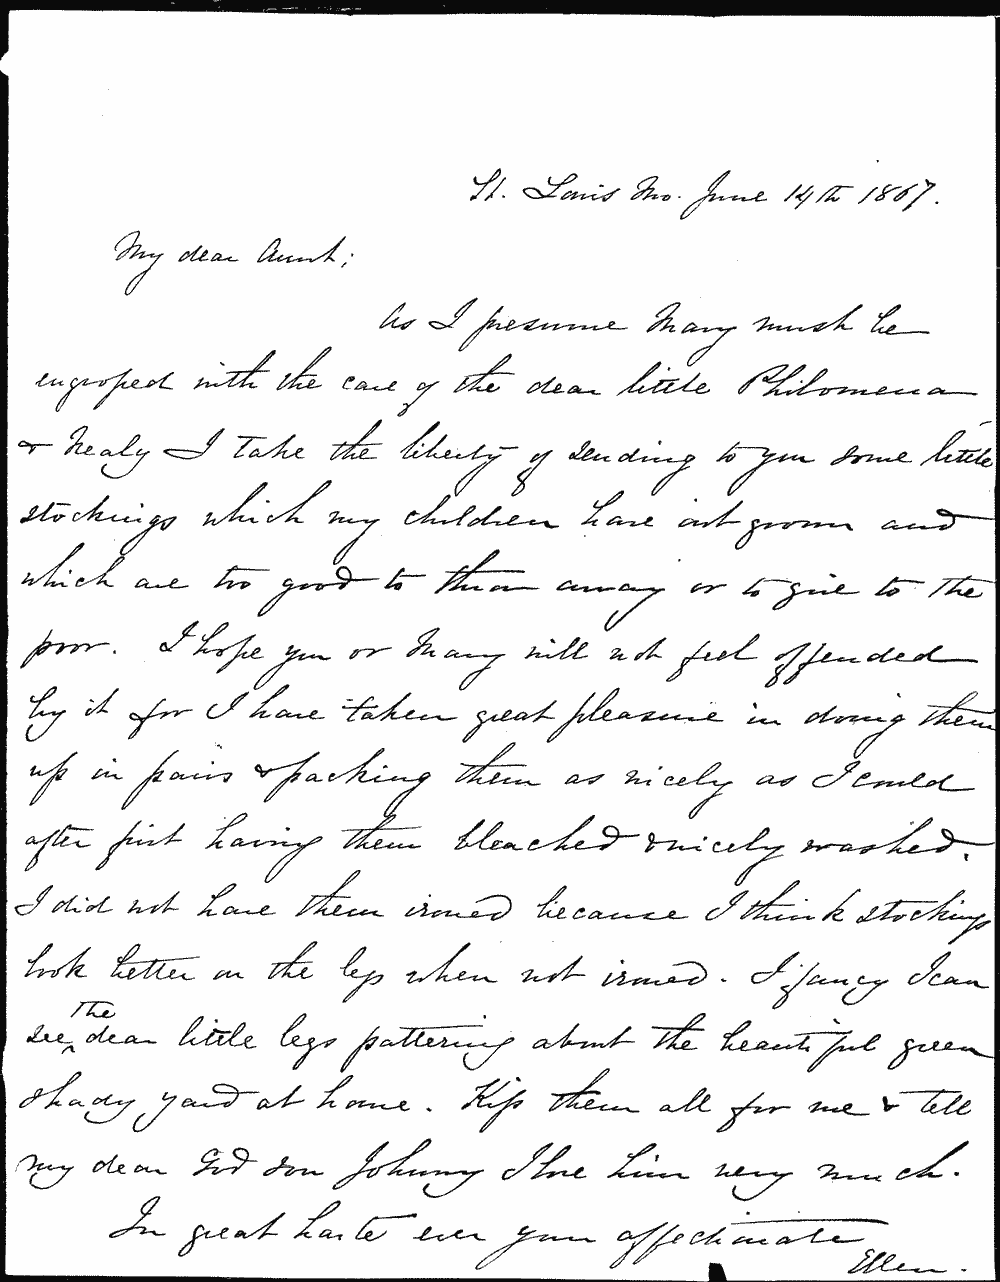 St. Louis Mo. June 14th 1867.
My dear Aunt;
As I presume Mary must be
engrossed with the care of the dear little Philomena
& Nealy I take the liberty of sending to you some little
stockings which my children have out grown and
which are too good to throw away or to give to the
poor. I hope you or Mary will not feel offended
by it for I have taken great pleasure in doing them
up in pairs & packing them as nicely as I could
after first having them bleached & nicely washed.
I did not have them ironed because I think stockings
look better on the legs when not ironed. I fancy I can
see the dear little legs pattering about the beautiful green
shady yard at home. Kiss them all for me & tell
my dear God son Johnny I love him very much.
In great haste ever your affectionate
Ellen.